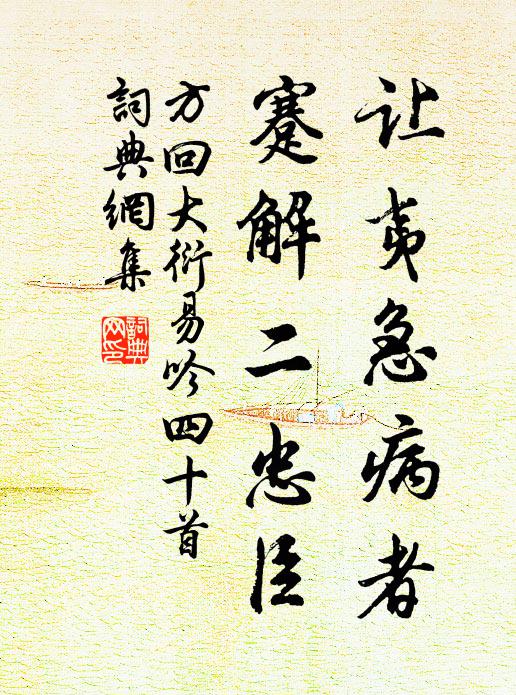 让夷急病者
蹇解二忠臣
方回大衍易吟四十首
詞典網集
詞典
网印